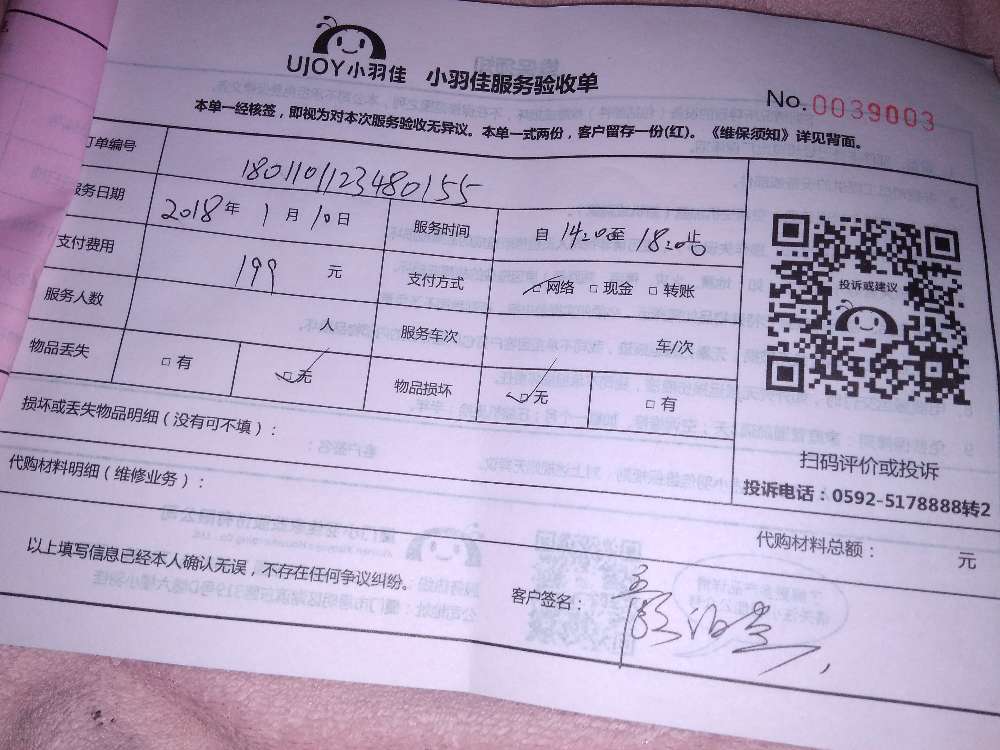 UJOY小羽佳 小羽佳服务验收单
No.0039003
本单一经核签，即视为对本次服务验收无异议。本单一式两份，客户留存一份(红)。《维保须知》详见背面。
订单编号 180110112348 0155
服务日期 2018年1月10日 服务时间 自14:20至18:20止
支付费用 199元 支付方式 □网络 □现金 □转账
服务人数 人 服务车次 车/次
物品丢失 □有 □无 物品损坏 □无 □有
投诉或建议
损坏或丢失物品明细（没有可不填）：
扫码评价或投诉
代购材料明细（维修业务）：
投诉电话：0592-5178888转2
代购材料总额： 元
以上填写信息已经本人确认无误，不存在任何争议纠纷。
客户签名：